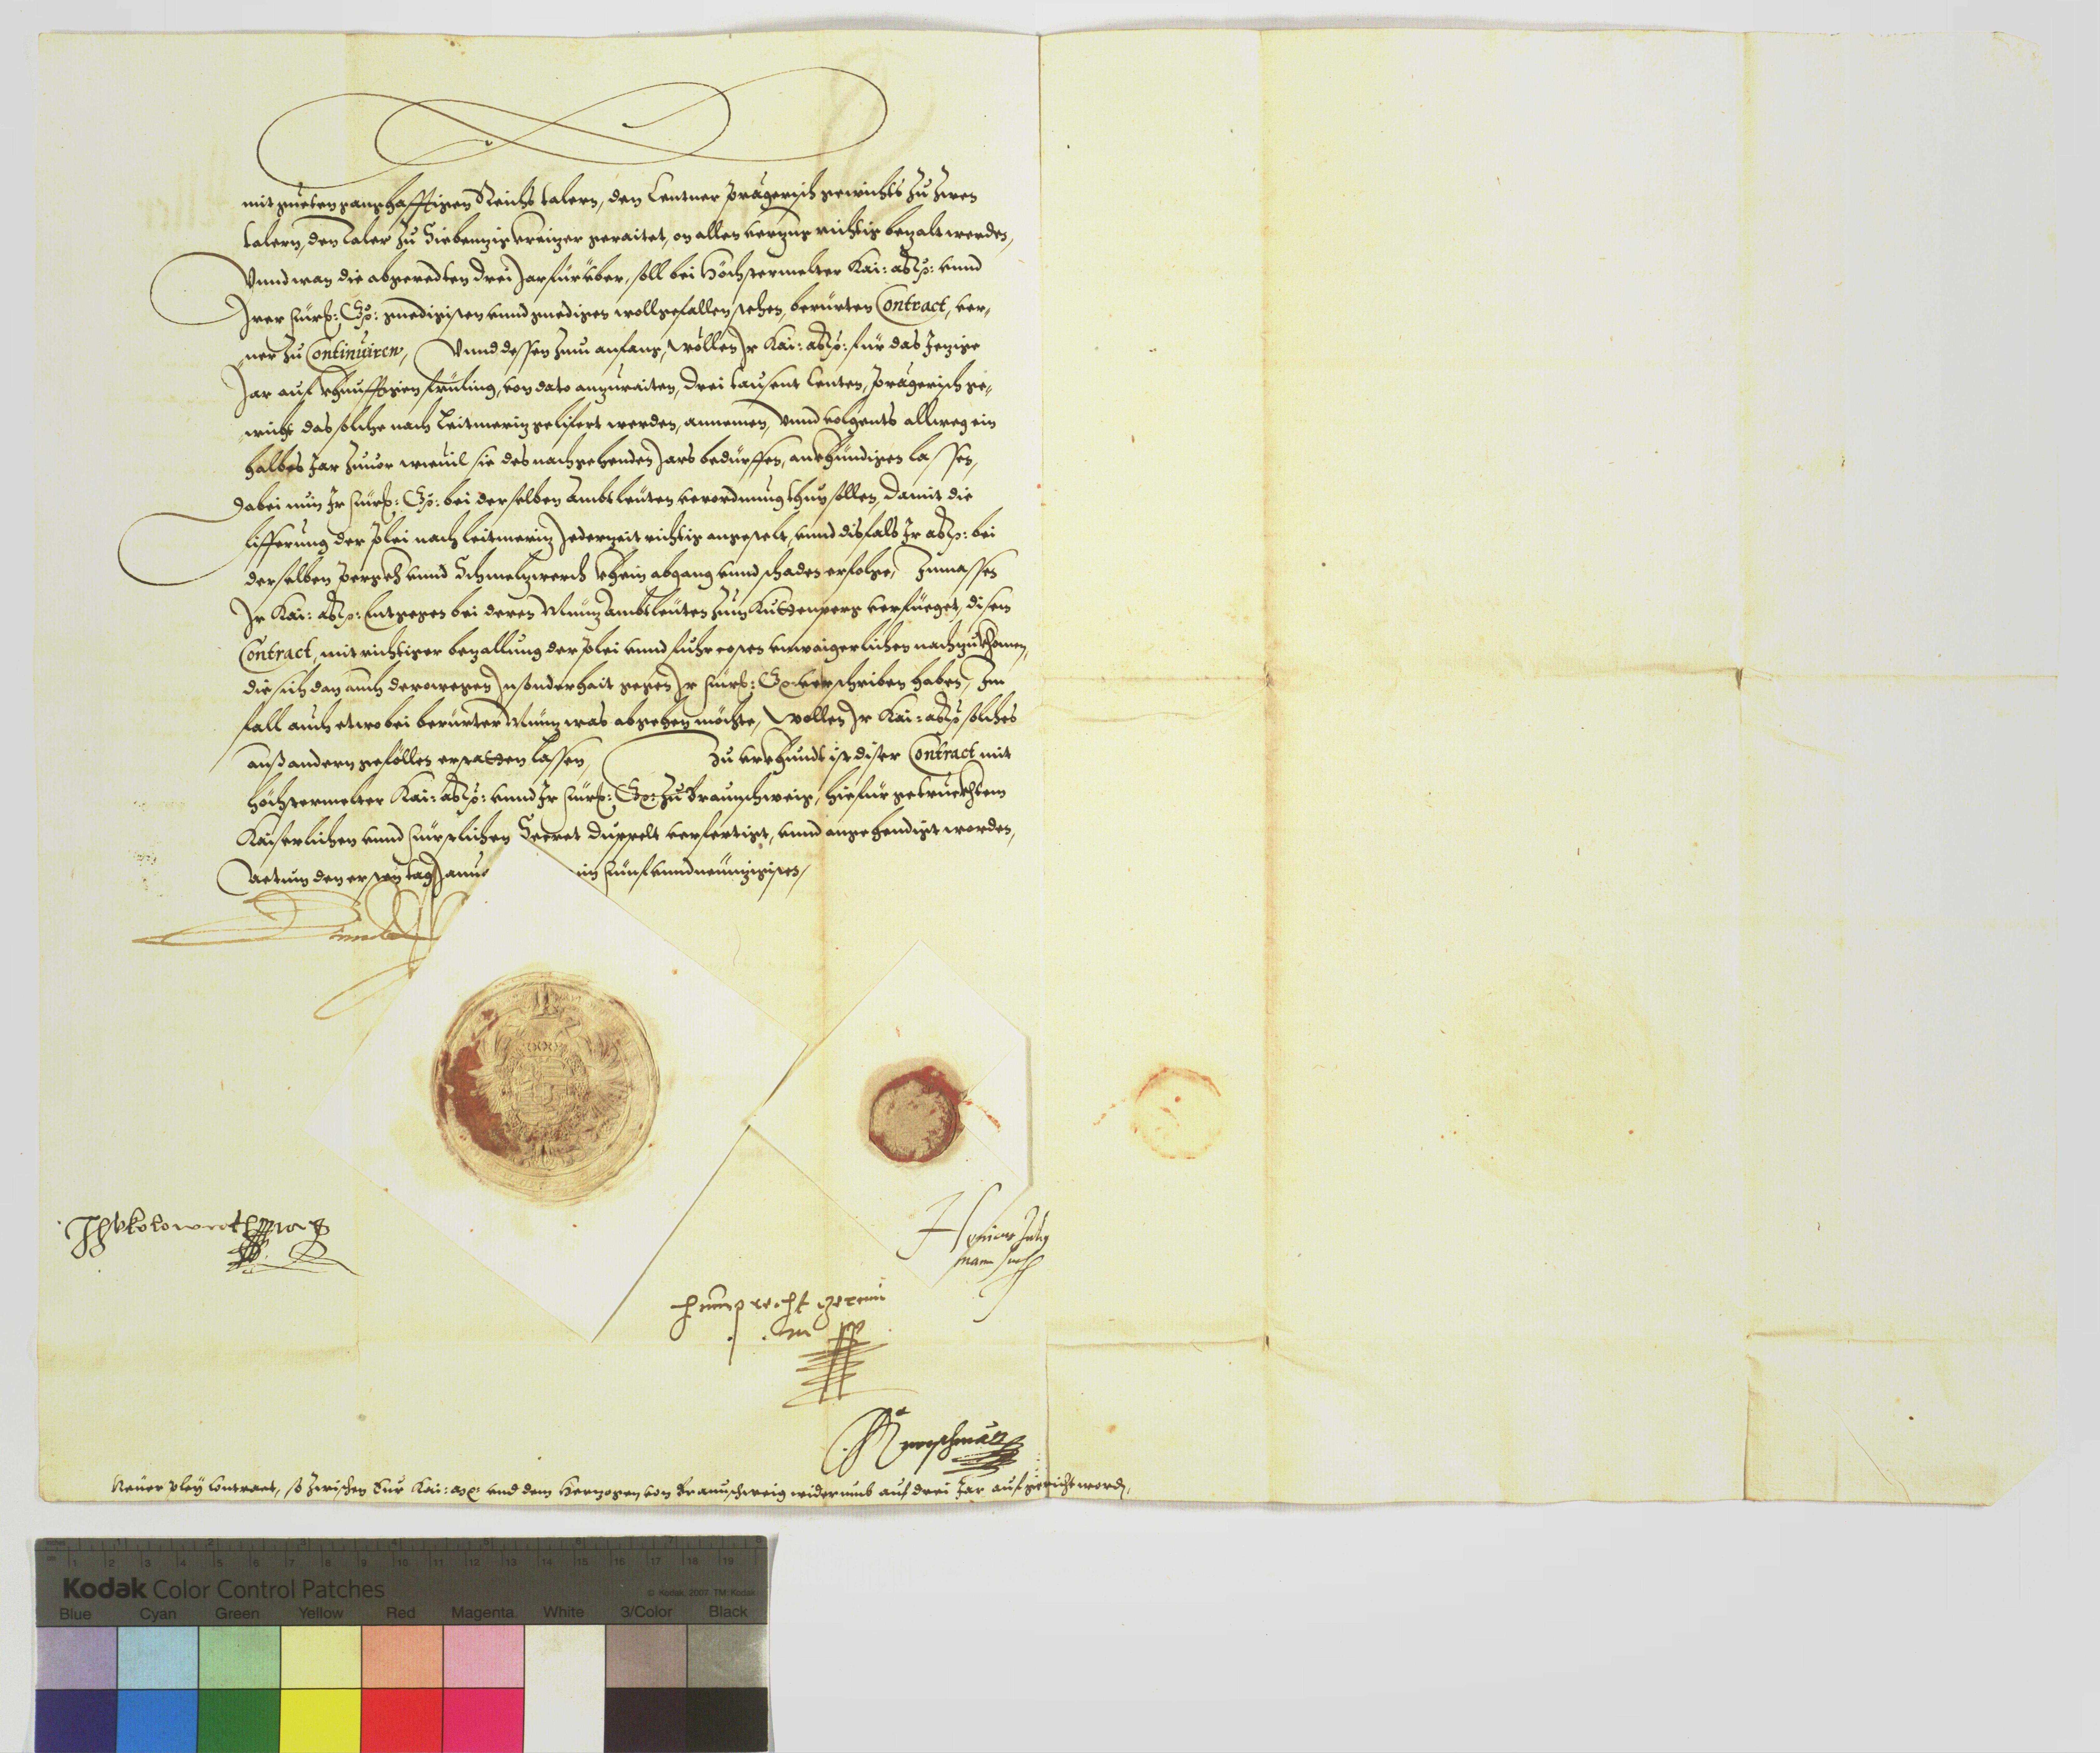 mit gueten ganghafftigen Reichs talern, den Centner Prägerisch gewichts zu zwen
talern, den taler zu Siebenzig kreizer geraitet, on allen verzug richtig bezalt werden,
Vnnd wan die abgeredten drei Jar fürüber, soll bei Höchsternelter Kai: Mt: vnnd
Irer Fürstl: G: gnedigisten vnnd gnedigen wollgefallen stehen, berürten Contract, ver-
ner zu Continuiren, Vnnd dessen zum anfang, wöllen Ir Kai: Mt: für das Jezige
Jar auf khunfftigen früling, von dato anzuraiten, drei tausent Centen, Prägerisch ge-
wicht das solche nach Leitmeriz gelifert werden, annemen, Vnnd volgents allweg ein
halbes Jar zuuor wieuil sie des nachgehenden Jars bedürffen, ankhündigen lassen,
dabei nun Ir Fürstl: G: bei derselben Ambtleuten verordnung thun sollen, damit die
lifferung der Plei nach Leitmeriz Jederzeit richtig angestelt, vnnd disfals Ir Mt: bei
derselben Pergkh vnnd Schmelzwerch khain abgang vnnd schaden erfolge, Inmassen
Ir Kai: Mt: Entgegen bei deren Münz Ambtleuten zum Kuttenperg verfüeget, disem
Contract, mit richtiger bezallung der Plei vnnd fuhrcosten vnwaigerlichen nachzukhomen,
die sich dan auch derowegen Insonderhait gegen Ir Fürstl: G: verschriben haben, Im
fall auch etwo bei berürter Münz was abgehen möchte, wöllen Ir Kai: Mt: solches
auß andern gefällen erstatten lassen, Zu vrkhundt ist diser Contract mit
höchsternelter Kai: Mt: vnnd Ir Fürstl: G: zu Braunschweig, hiefür getrucktem
Kaiserlichen vnnd Fürstlichen Secret duppelt verfertigt, vnnd angehendigt worden,
Actum den ersten tag Janu im Fünf vnnd neunzigisten,
Rudolf
Humprecht
Neuer Pley Contract, so zwischen Eur Kai: Mt: vnd dem Herzogen von Braunschweig widerumb auf drei Jar aufgericht word,
inches
cm
1 2 3 4 5 6 7 8 9 10 11 12 13 14 15 16 17 18 19
Kodak Color Control Patches
© Kodak, 2007 TM: Kodak
Blue Cyan Green Yellow Red Magenta White 3/Color Black